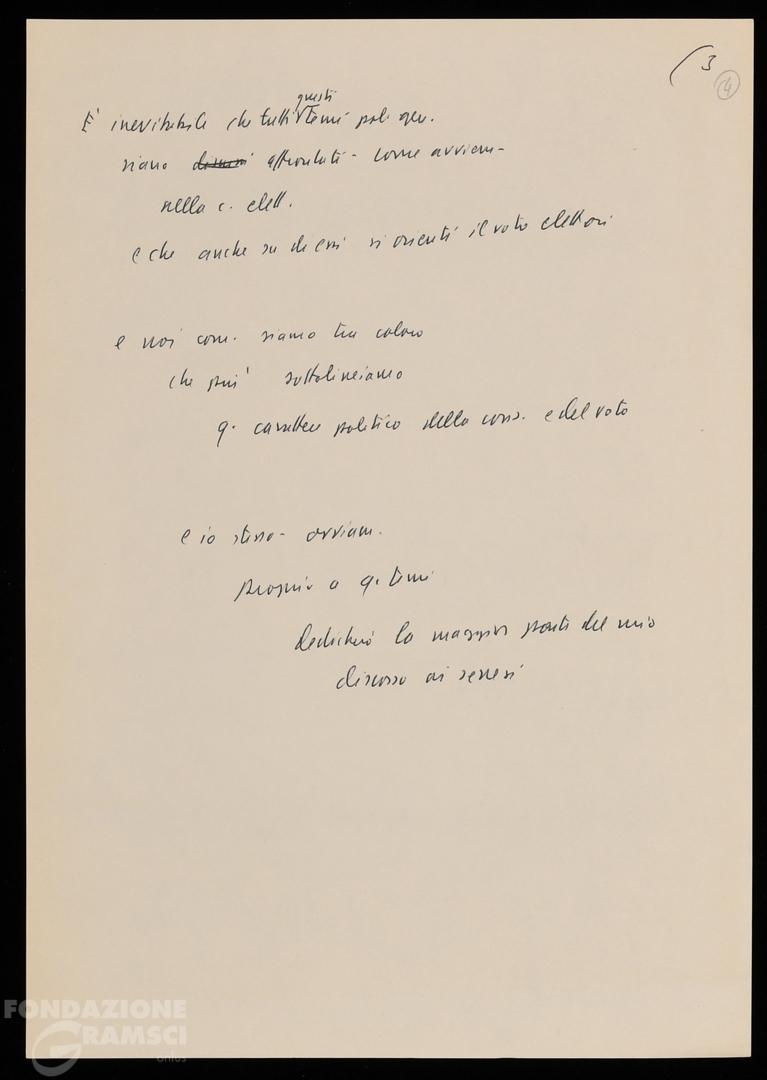 3
4
È inevitabile che tutti questi temi pol. gen.
siano affrontati - come avviene -
nella c. elett.
e che anche su di essi si orienti il voto elettori
e noi com. siamo tra coloro
che più sottolineiamo
q. carattere politico della cons. e del voto
e io stesso - avviam.
proprio a q. temi
dedicherò la maggior parte del mio
discorso ai senesi
FONDAZIONE
GRAMSCI
onlus